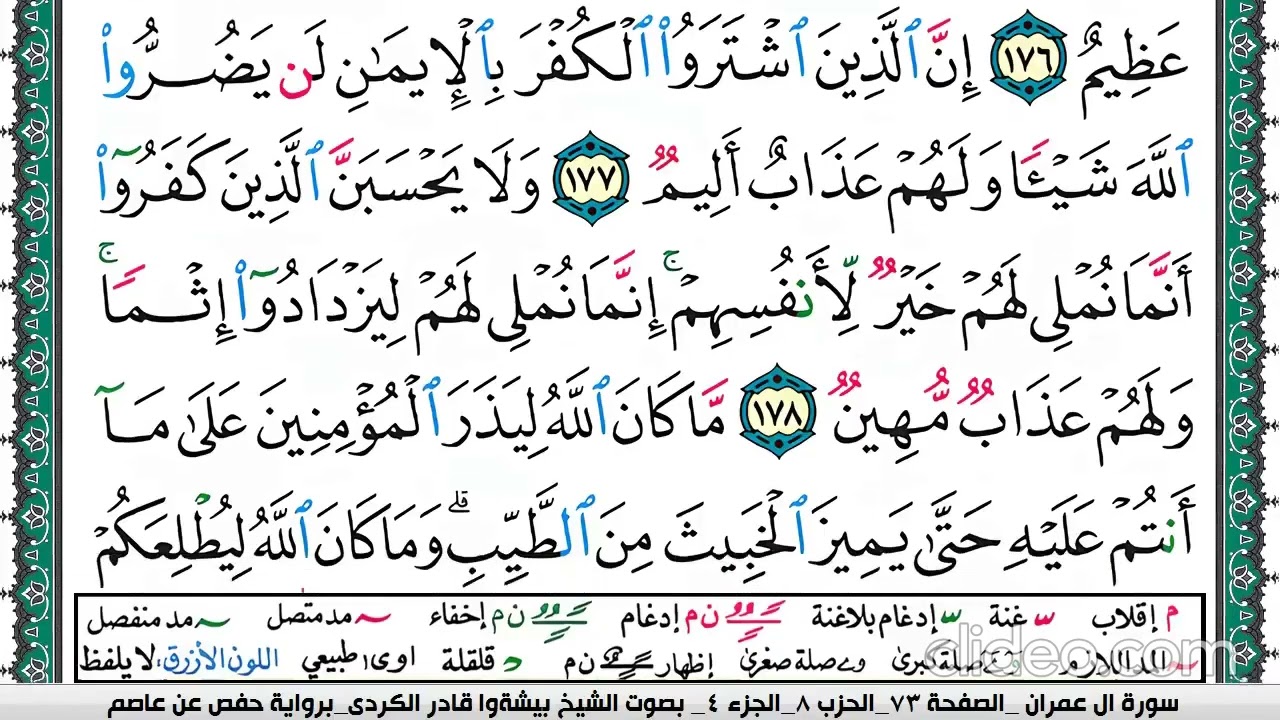 عَظِيمٌ ١٧٦ إِنَّ ٱلَّذِينَ ٱشْتَرَوُا۟ ٱلْكُفْرَ بِٱلْإِيمَٰنِ لَن يَضُرُّوا۟
ٱللَّهَ شَيْـًٔا وَلَهُمْ عَذَابٌ أَلِيمٌ ١٧٧ وَلَا يَحْسَبَنَّ ٱلَّذِينَ كَفَرُوٓا۟
أَنَّمَا نُمْلِى لَهُمْ خَيْرٌ لِّأَنفُسِهِمْ ۚ إِنَّمَا نُمْلِى لَهُمْ لِيَزْدَادُوٓا۟ إِثْمًا ۚ
وَلَهُمْ عَذَابٌ مُّهِينٌ ١٧٨ مَّا كَانَ ٱللَّهُ لِيَذَرَ ٱلْمُؤْمِنِينَ عَلَىٰ مَآ
أَنتُمْ عَلَيْهِ حَتَّىٰ يَمِيزَ ٱلْخَبِيثَ مِنَ ٱلطَّيِّبِ ۗ وَمَا كَانَ ٱللَّهُ لِيُطْلِعَكُمْ
م إقلاب س غنة س إدغام بلاغنة ن م إدغام ن م إخفاء مد متصل مد منفصل
المد اللازم صلة كبرى وے صلة صغرى إظهار ن م قلقلة اوى طبيعي اللون الأزرق: لا يلفظ
clideo.com
سورة ال عمران _الصفحة ٧٣_الحزب ٨_الجزء ٤_ بصوت الشيخ بيشةوا قادر الكردى_برواية حفص عن عاصم